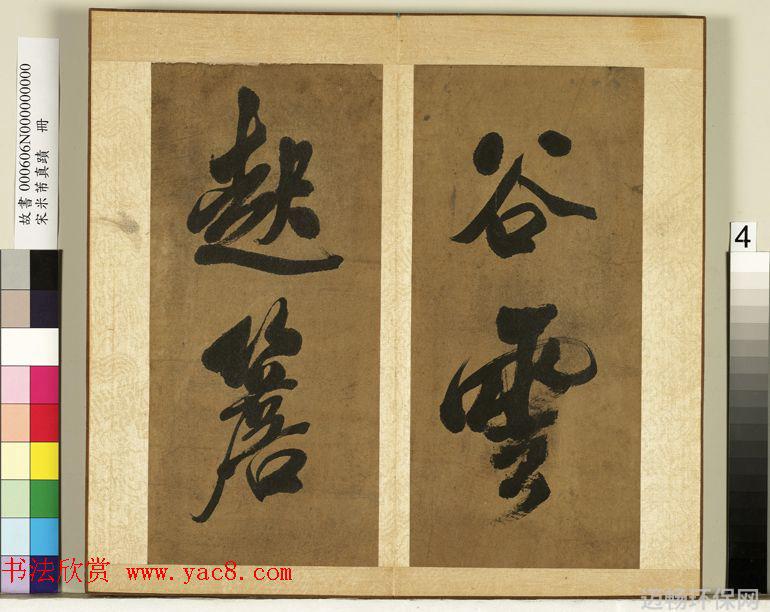 谷雲
起簷
故書 000606N000000000
宋米芾真蹟 冊
4
书法欣赏 www.yac8.com
迈畅环保网